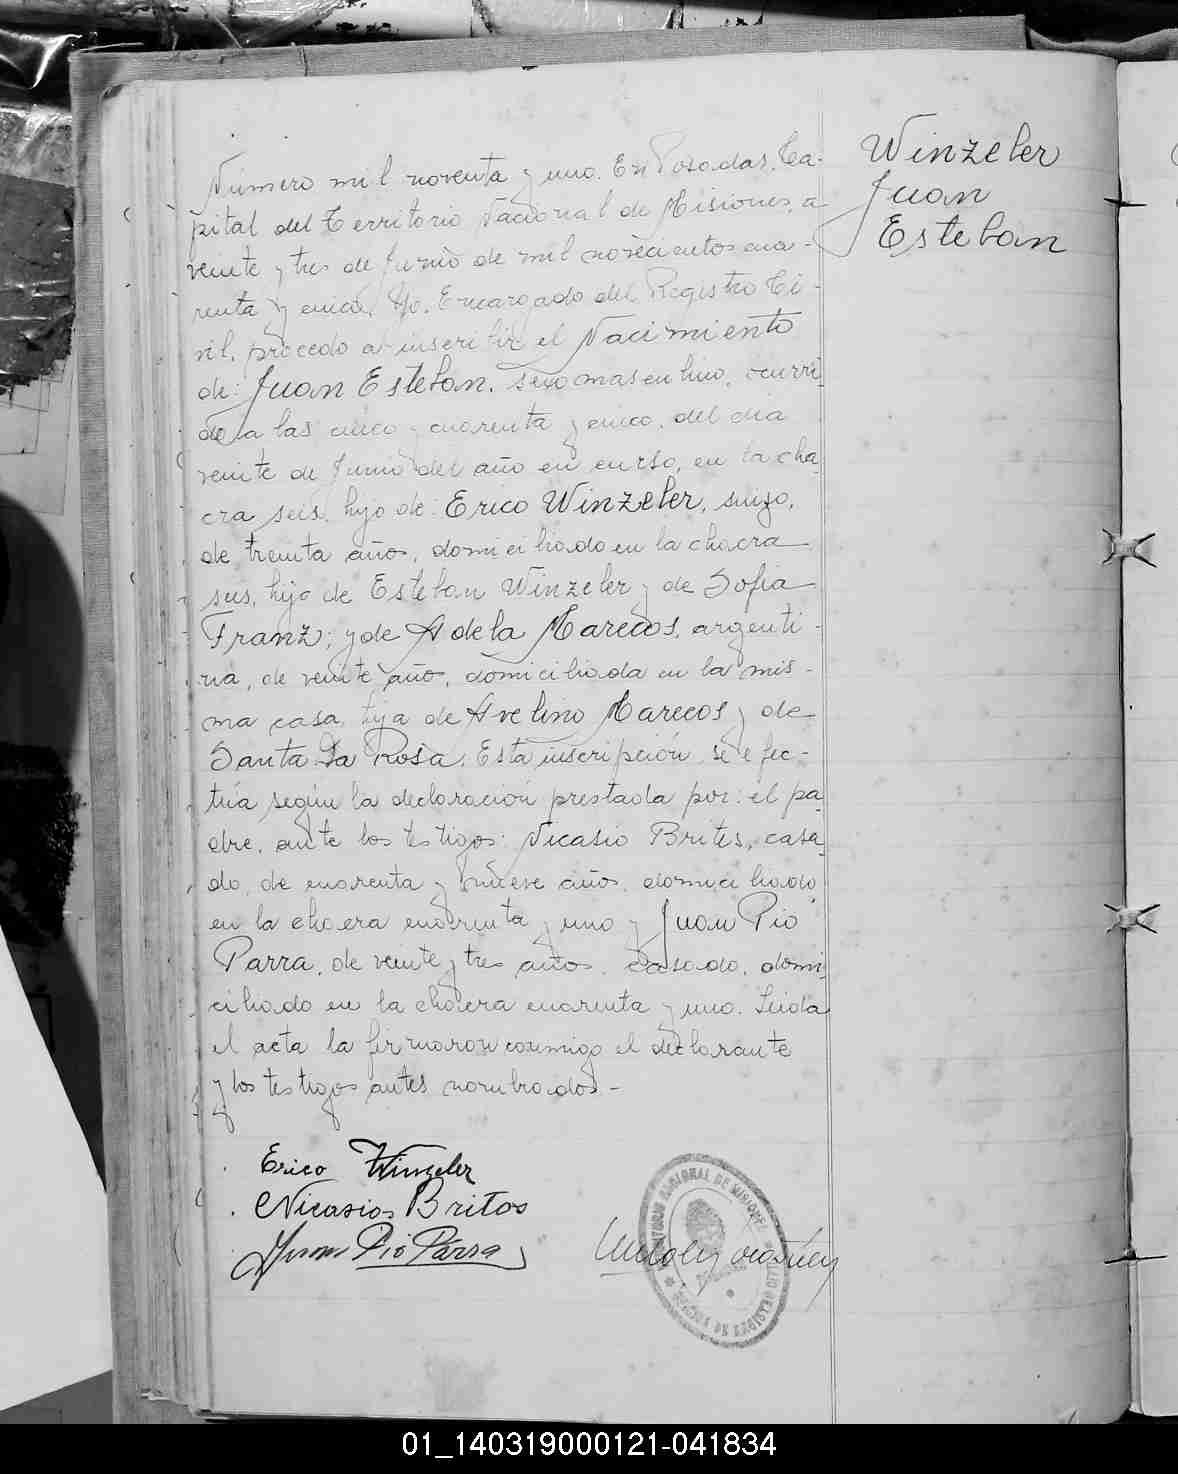 Winzeler
Juan
Esteban
Número mil noventa y uno. En Posadas, Ca-
pital del Territorio Nacional de Misiones, a
veinte y tres de Junio de mil novecientos cua-
renta y cinco, Yo, Encargado del Registro Ci-
vil, procedo a inscribir el Nacimiento
de: Juan Esteban, sexo masculino, ocurri-
do a las cinco y cuarenta y cinco, del día
veinte de Junio del año en curso, en la cha-
cra seis, hijo de: Erico Winzeler, suizo,
de treinta años, domiciliado en la chacra
seis, hijo de Esteban Winzeler y de Sofía
Franz; y de Adela Marecos, argenti-
na, de veinte años, domiciliada en la mis-
ma casa, hija de Avelino Marecos y de
Santa La Rosa. Esta inscripción se efec-
túa según la declaración prestada por: el pa-
dre, ante los testigos: Nicasio Brites, casa-
do, de cuarenta y nueve años, domiciliado
en la chacra cuarenta y uno y Juan Pio
Parra, de veinte y tres años, casado, domi-
ciliado en la chacra cuarenta y uno. Leida
el acta la firmaron conmigo el declarante
y los testigos antes nombrados-
Erico Winzeler
Nicasios Britos
Juan Pio Parra
TERRITORIO NACIONAL DE MISIONES
01_140319000121-041834